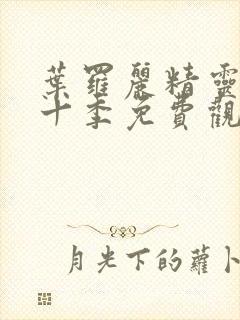 葉羅麗精靈
十季免費觀
月光下的蘿卜